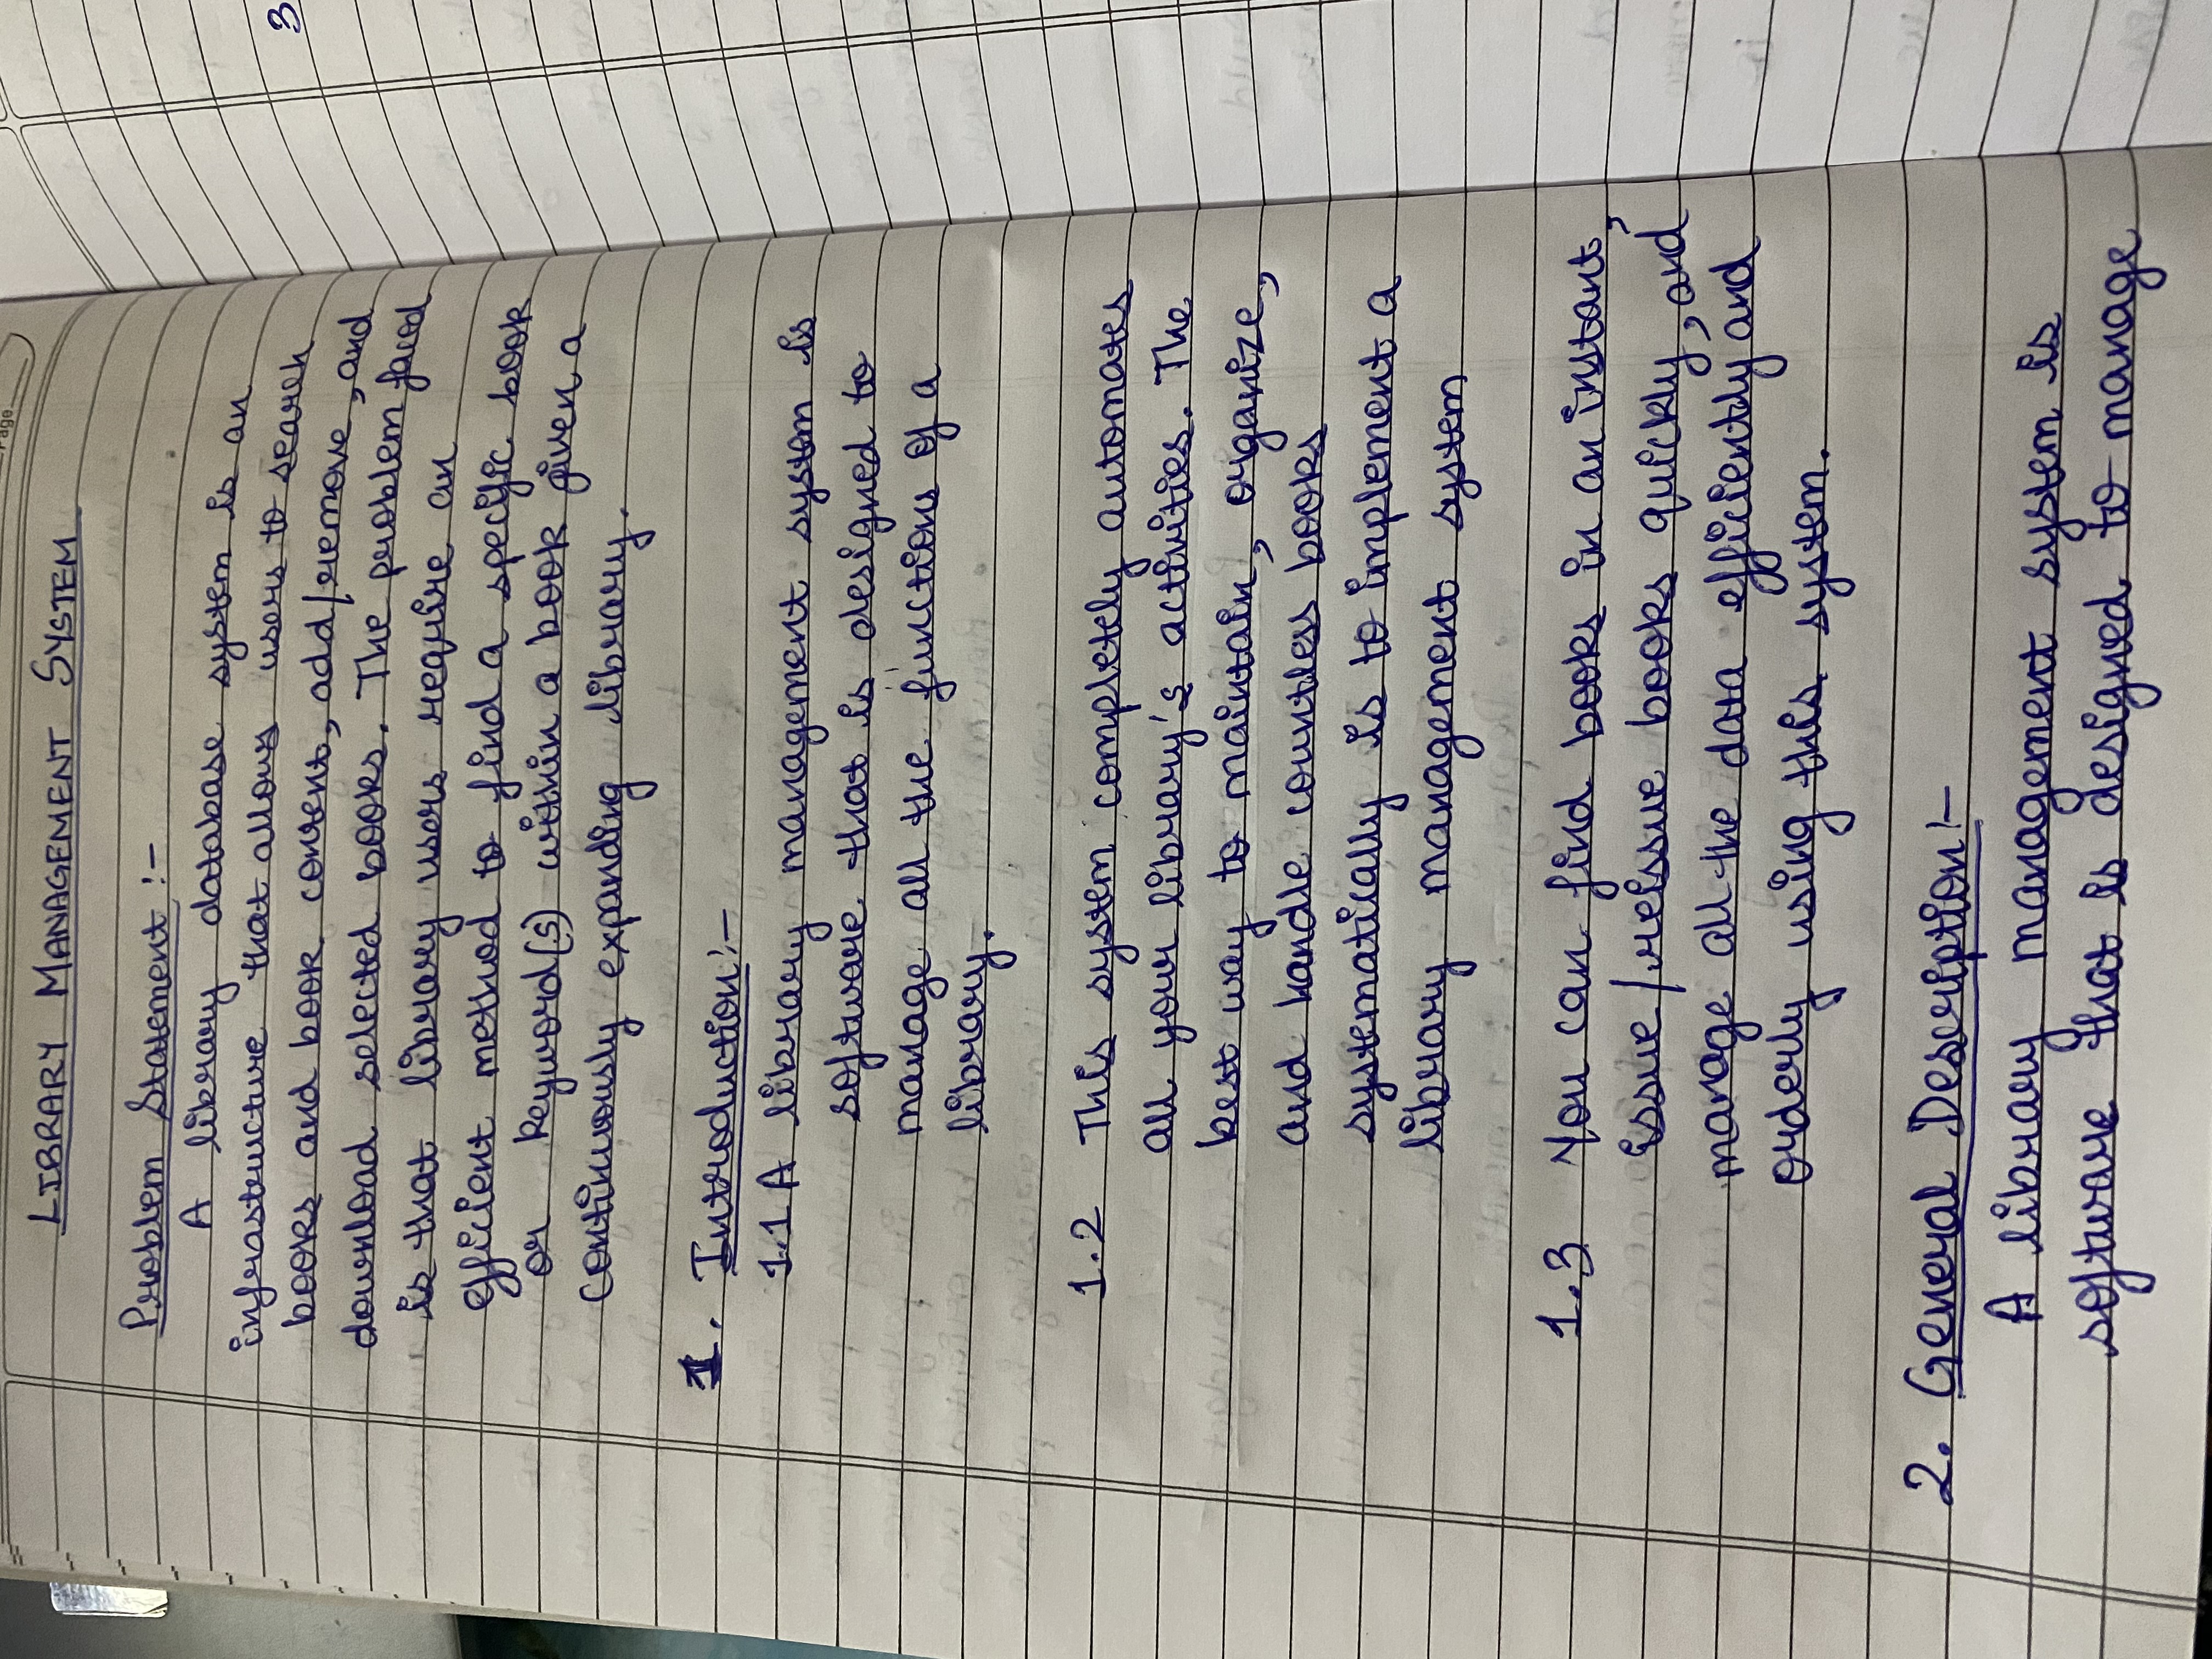 Page
LIBRARY MANAGEMENT SYSTEM
Problem Statement :-
A library database system is an
infrastructure that allows users to search
books and book content, add/remove, and
download selected books. The problem faced
is that library users require an
efficient method to find a specific book
or keyword(s) within a book given a
continuously expanding library.
1. Introduction:-
1.1 A library management system is
software that is designed to
manage all the functions of a
library.
1.2 This system completely automates
all your library's activities. The
best way to maintain, organize,
and handle countless books
systematically is to implement a
library management system
1.3 You can find books in an instant,
issue/reissue books quickly, and
manage all the data efficiently and
orderly using this system.
2. General Description:-
A library management system is
software that is designed to manage
3